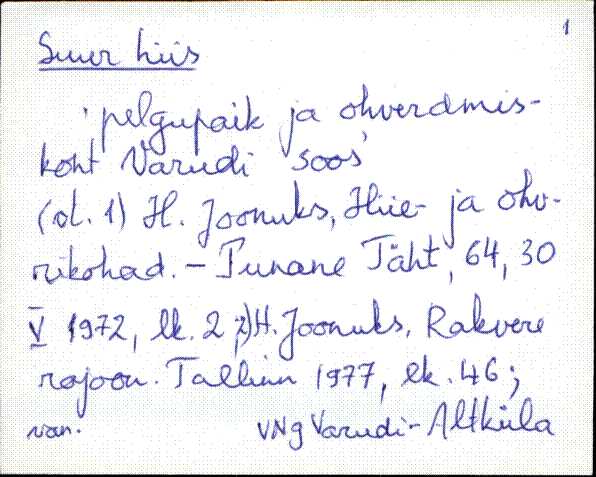 1
Suur hiis
'pelgupaik ja ohverdmis-
koht Varudi soos'
(ol. 1) H. Joonuks, Hiie- ja ohv-
rikohad. - Punane Täht, 64, 30
V 1972, lk. 2; 2) H. Joonuks, Rakvere
rajoon. Tallinn 1977, lk. 46;
van. VNg Varudi-Altküla